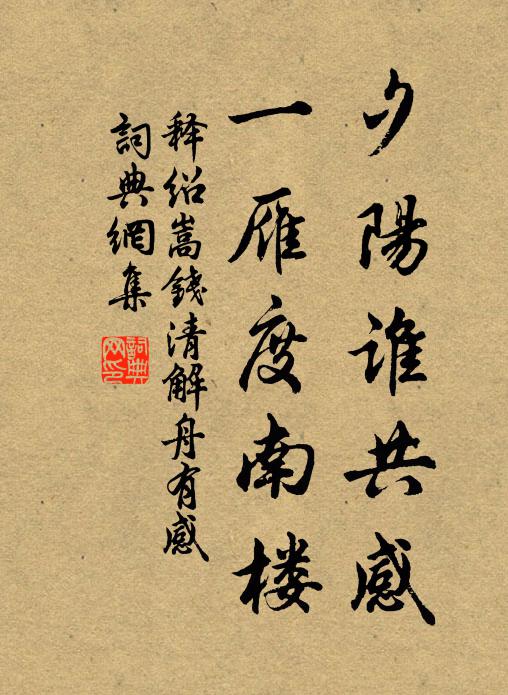 夕陽谁共感
一雁度南楼
释绍嵩錢清解舟有感
詞典網集
詞典
网印